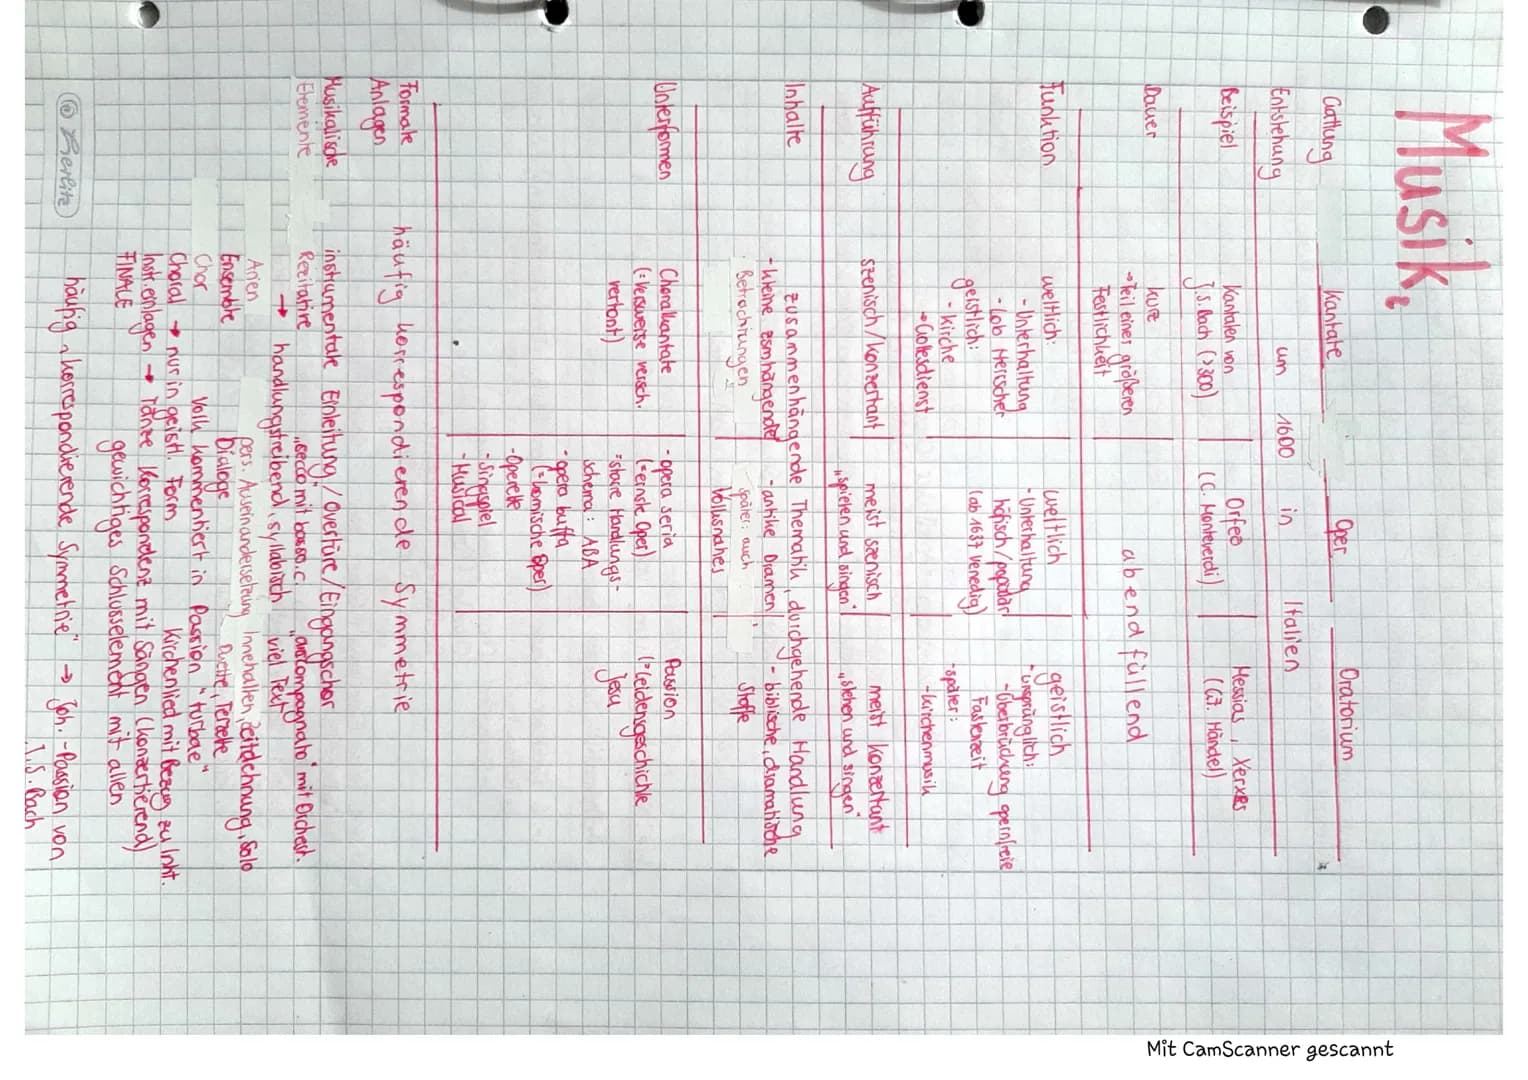 Musik
Gattung Kantate Oper Oratorium
Entstehung um 1600 in Italien
Beispiel Kantaten von J.S. Bach (>300) Orfeo (C. Monteverdi) Messias, Xerxes (G.F. Händel)
Dauer kurz
→ Teil eines größeren
Festlichkeit
abendfüllend
Funktion weltlich:
- Unterhaltung
- Lob Herrscher
geistlich:
- Kirche
→ Gottesdienst
weltlich
- Unterhaltung
höfisch/populär
(ab 1637 Venedig)
geistlich
- ursprünglich:
- Überbrückung opernfreie
Fastenzeit
- später:
- Kirchenmusik
Aufführung szenisch/konzertant meist szenisch meist konzertant
"spielen und singen" "stehen und singen"
Inhalte zusammenhängende Thematik, durchgehende Handlung
- kleine zsmhängende
Betrachtungen
- antike Dramen
später: auch
Volksnahes
- biblische, dramatische
Stoffe
Unterformen Choralkantate
(=Versweise versch.
vertont)
- opera seria
(=ernste Oper)
=starre Handlungs-
schema: ABA
- opera buffa
(=komische Oper)
- Operette
- Singspiel
- Musical
Passion
(=Leidensgeschichte
Jesu
Formale
Anlagen
häufig korrespondierende Symmetrie
Musikalische
Elemente
instrumentale Einleitung/Overtüre/Eingangschor
Rezitative "secco mit basso.c. "accompagnato" mit Orchest.
→ handlungstreibend, syllabisch viel Text
Arien pers. Auseinandersetzung Innehalten, Zeitdehnung, Solo
Ensemble Dialoge Duette, Terzette
Chor Volk kommentiert in Passion "turbae"
Choral → nur in geistl. Form Kirchenlied mit Bezug zu Inht.
Instr. einlagen → Tänze Korrespondenz mit Sängen (konzertierend)
FINALE gewichtiges Schlusselement mit allen
häufig "korrespondierende Symmetrie" → Joh.-Passion von
J.S. Bach
Mit CamScanner gescannt